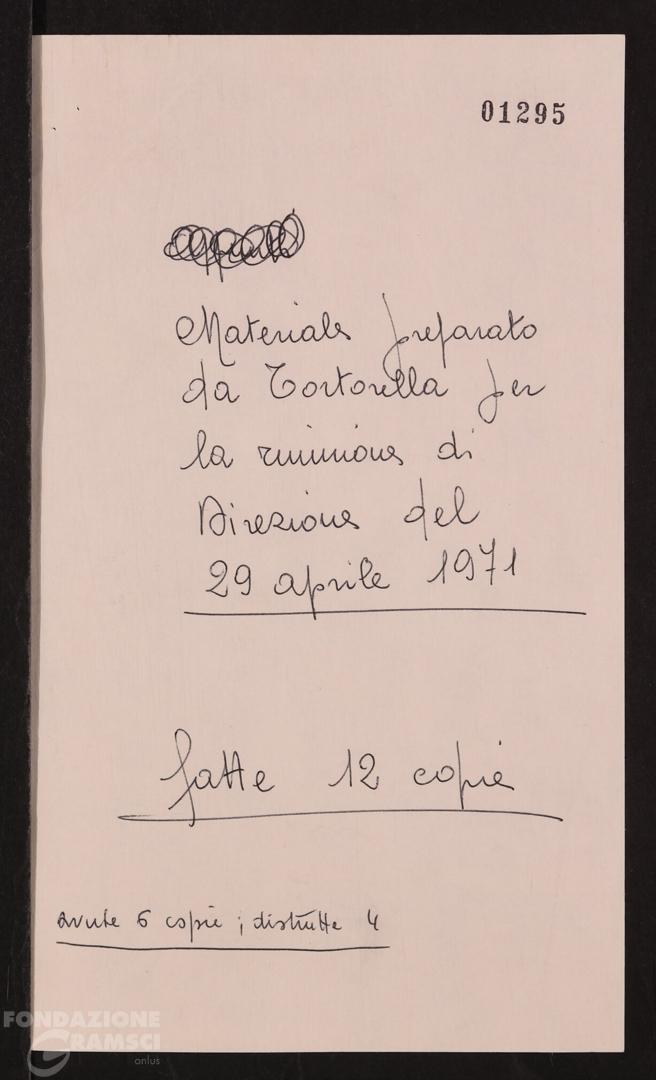 01295
Materiale preparato
da Tortorella per
la riunione di
Direzione del
29 aprile 1971
fatte 12 copie
avute 6 copie ; distrutte 4
FONDAZIONE
GRAMSCI
onlus